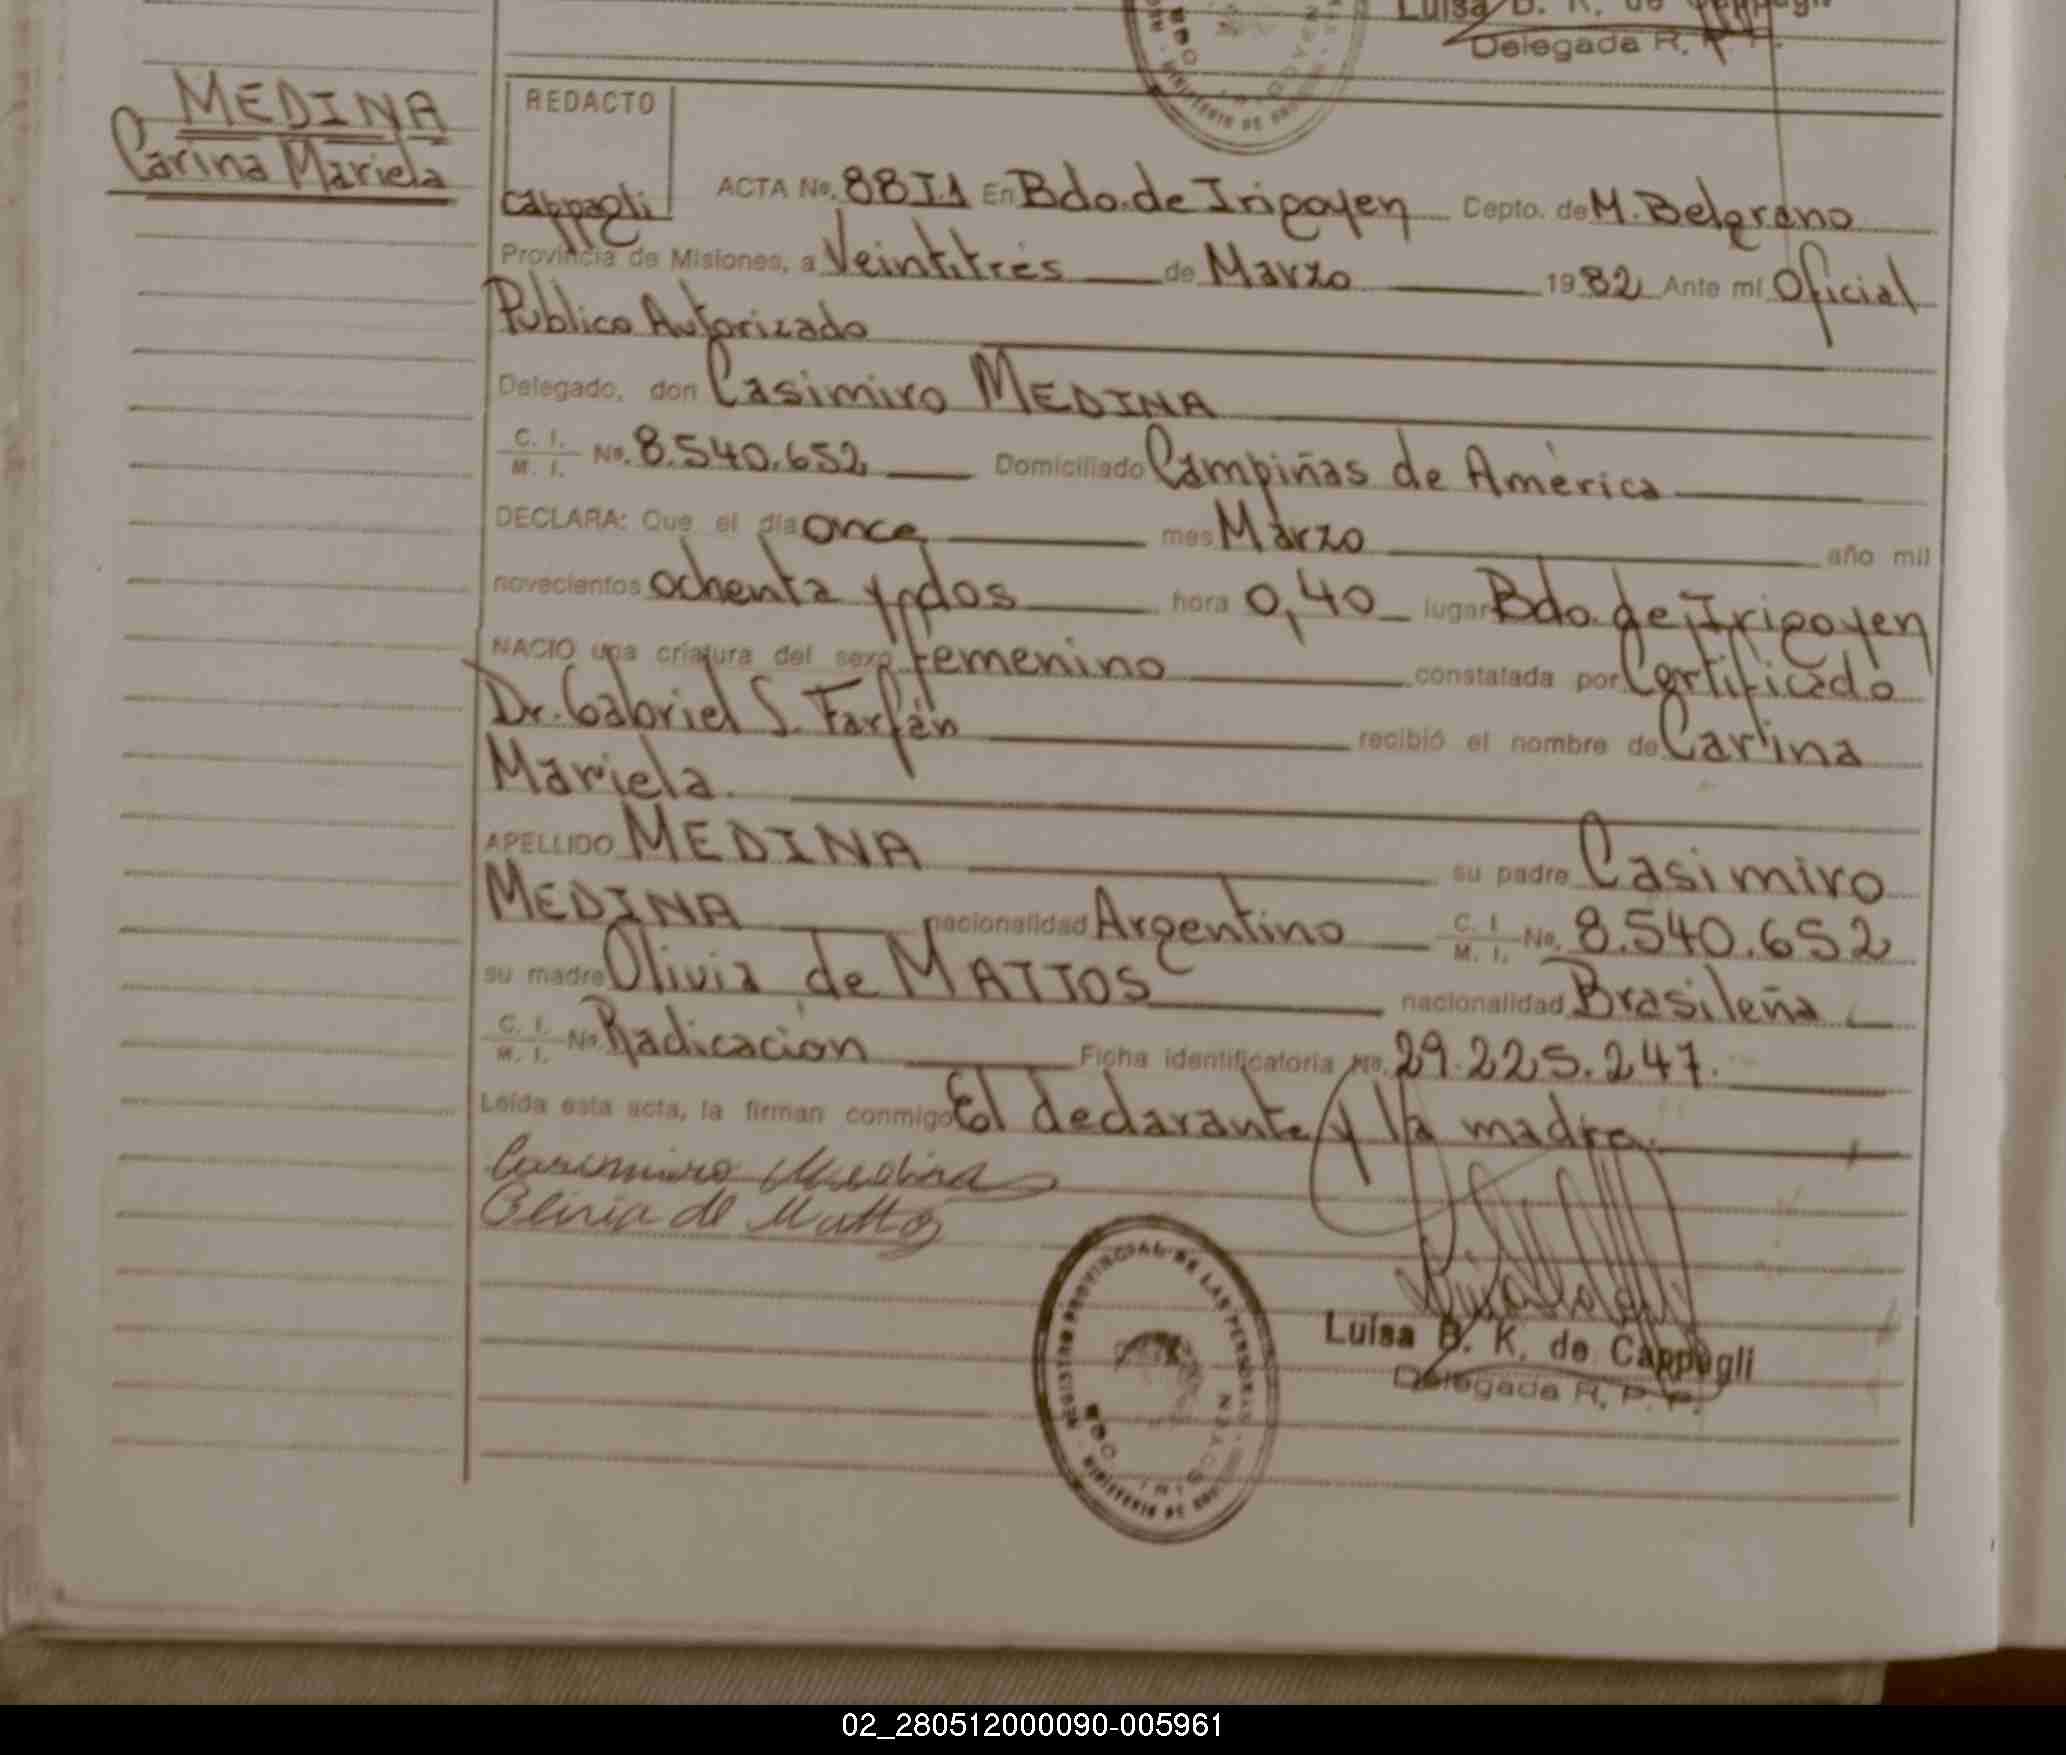 Luisa B. K. de Cappagli
Delegada R. P. P.
MEDINA
Carina Mariela
REDACTO
Cappagli
ACTA No. 88I1 En Bdo. de Irigoyen Depto. de M. Belgrano
Provincia de Misiones, a Veintitrés de Marzo 1982 Ante mí Oficial
Publico Autorizado
Delegado, don Casimiro MEDINA
C. I. M. I. No. 8.540.652 Domiciliado Campiñas de América
DECLARA: Que el día once mes Marzo año mil
novecientos ochenta y dos hora 0,40 lugar Bdo. de Irigoyen
NACIO una criatura del sexo femenino constatada por Certificado
Dr. Gabriel S. Farfán recibió el nombre de Carina
Mariela.
APELLIDO MEDINA su padre Casimiro
MEDINA nacionalidad Argentino C. I. M. I. No. 8.540.652
su madre Olivia de MATTOS nacionalidad Brasileña
C. I. M. I. No Radicación Ficha identificatoria No. 29.225.247.
Leída esta acta, la firman conmigo El declarante y la madre.
Casimiro Medina
Olivia de Mattos
REGISTRO PROVINCIAL DE LAS PERSONAS
BDO. IRIGOYEN
MINISTERIO DE
Luisa B. K. de Cappagli
Delegada R. P. P.
02_280512000090-005961